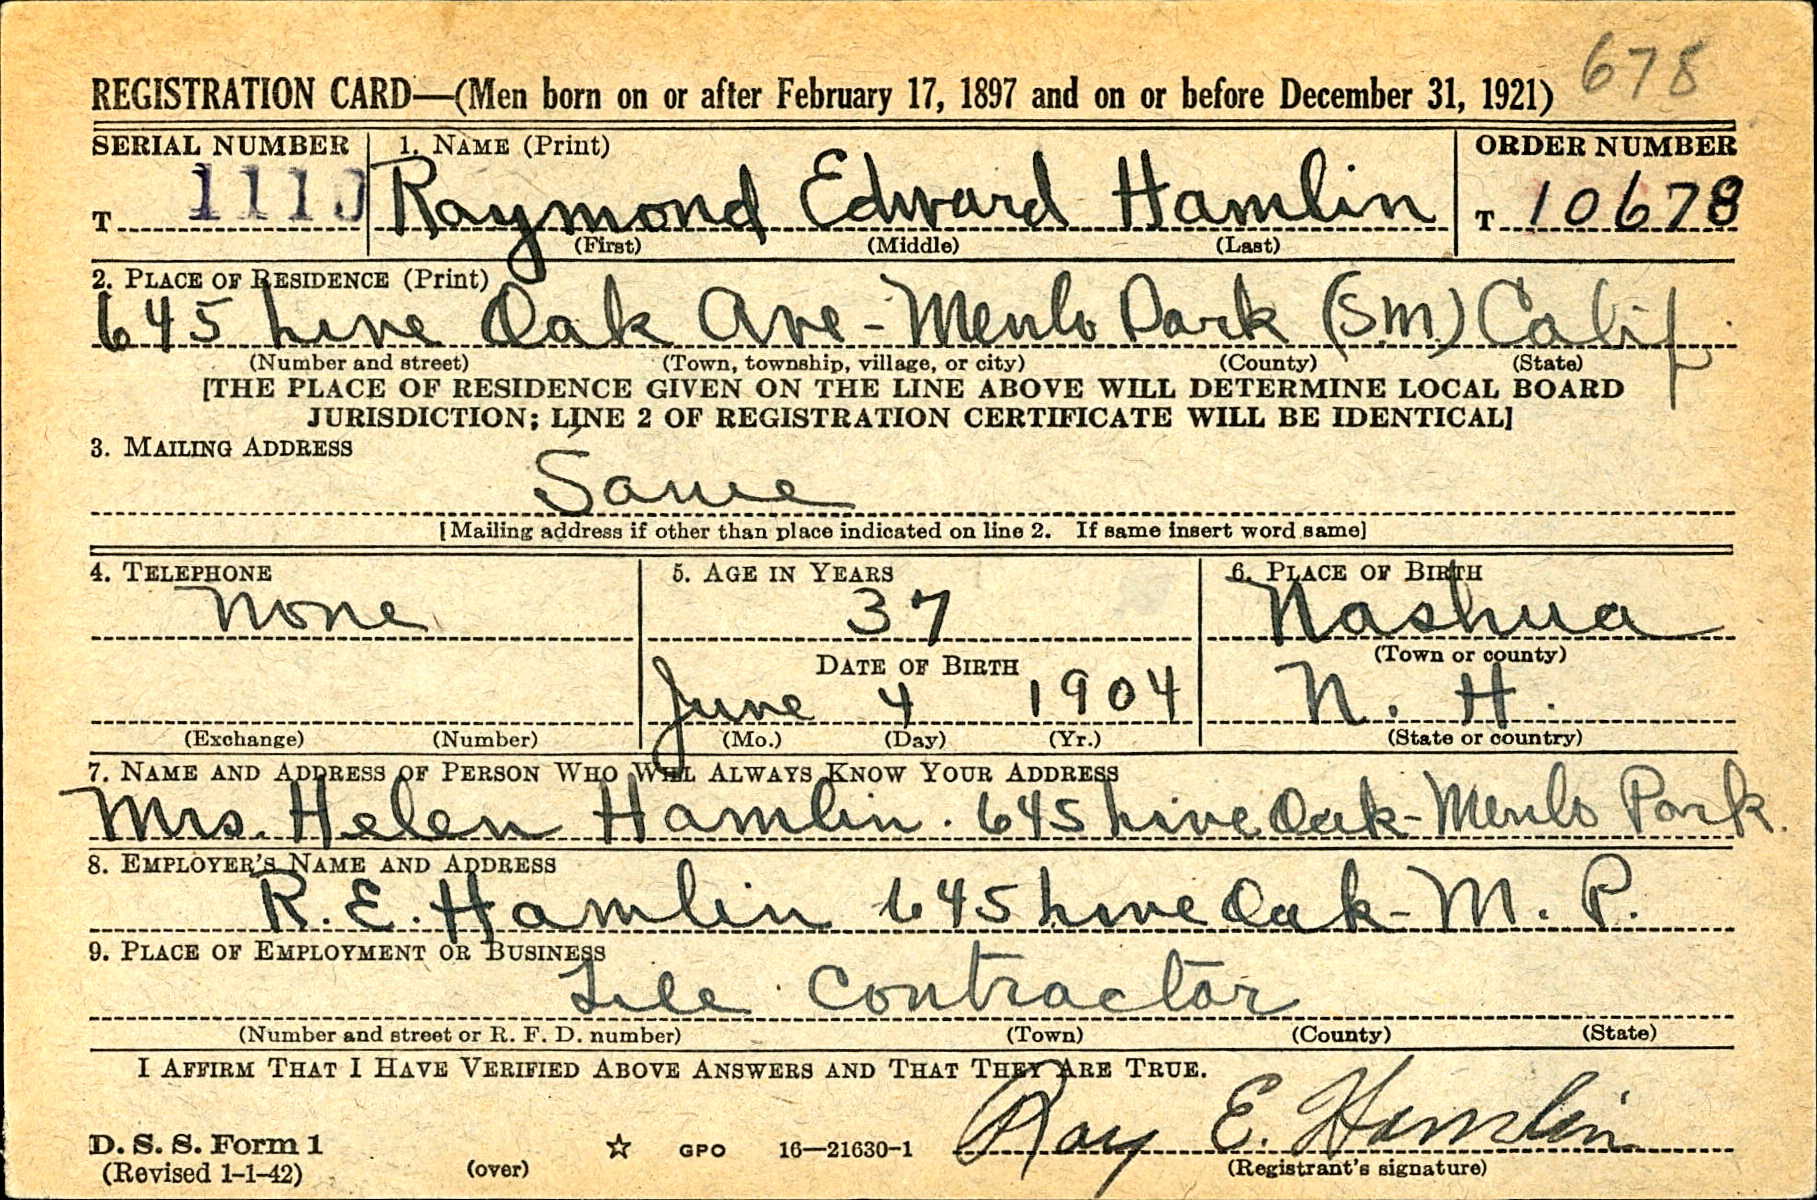 678
REGISTRATION CARD—(Men born on or after February 17, 1897 and on or before December 31, 1921)
SERIAL NUMBER 1. NAME (Print) ORDER NUMBER
T 1110 Raymond Edward Hamlin T 10678
(First) (Middle) (Last)
2. PLACE OF RESIDENCE (Print)
645 Live Oak Ave - Menlo Park (S.M.) Calif
(Number and street) (Town, township, village, or city) (County) (State)
[THE PLACE OF RESIDENCE GIVEN ON THE LINE ABOVE WILL DETERMINE LOCAL BOARD
JURISDICTION; LINE 2 OF REGISTRATION CERTIFICATE WILL BE IDENTICAL]
3. MAILING ADDRESS
Same
[Mailing address if other than place indicated on line 2. If same insert word same]
4. TELEPHONE 5. AGE IN YEARS 6. PLACE OF BIRTH
None 37 Nashua
DATE OF BIRTH (Town or county)
June 4 1904 N. H.
(Exchange) (Number) (Mo.) (Day) (Yr.) (State or country)
7. NAME AND ADDRESS OF PERSON WHO WILL ALWAYS KNOW YOUR ADDRESS
Mrs. Helen Hamlin. 645 Live Oak - Menlo Park.
8. EMPLOYER'S NAME AND ADDRESS
R. E. Hamlin 645 Live Oak - M. P.
9. PLACE OF EMPLOYMENT OR BUSINESS
Tile Contractor
(Number and street or R. F. D. number) (Town) (County) (State)
I AFFIRM THAT I HAVE VERIFIED ABOVE ANSWERS AND THAT THEY ARE TRUE.
Ray E. Hamlin
D. S. S. Form 1 ☆ GPO 16—21630-1
(Revised 1-1-42) (over) (Registrant's signature)